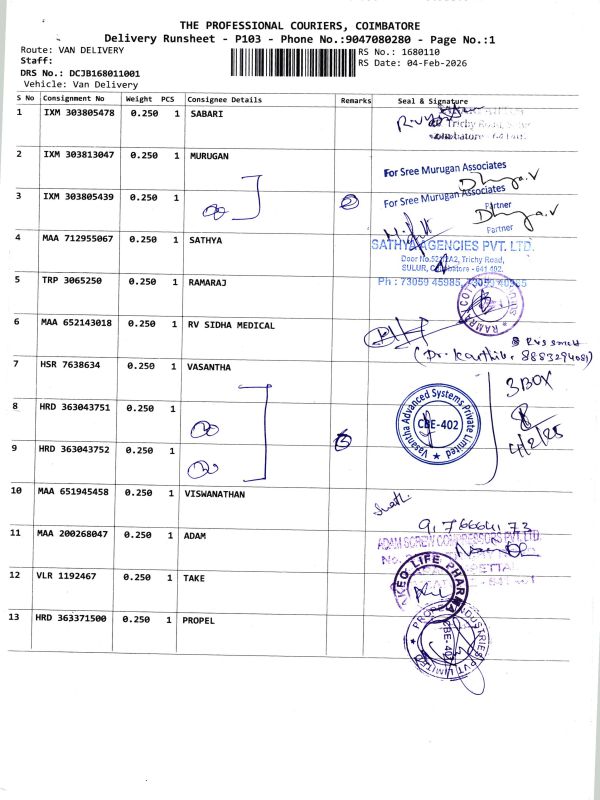 THE PROFESSIONAL COURIERS, COIMBATORE
Delivery Runsheet - P103 - Phone No.:9047080280 - Page No.:1
Route: VAN DELIVERY
RS No.: 1680110
Staff:
RS Date: 04-Feb-2026
DRS No.: DCJB168011001
Vehicle: Van Delivery
S No Consignment No Weight PCS Consignee Details Remarks Seal & Signature
1 IXM 303805478 0.250 1 SABARI
Trichy Road,
2 IXM 303813047 0.250 1 MURUGAN
For Sree Murugan Associates
Partner
3 IXM 303805439 0.250 1 2
For Sree Murugan Associates
Partner
4 MAA 712955067 0.250 1 SATHYA
SATHYA AGENCIES PVT. LTD.
Trichy Road,
SULUR, Coimbatore - 641 402.
5 TRP 3065250 0.250 1 RAMARAJ
Ph : 73059 45985,
6 MAA 652143018 0.250 1 RV SIDHA MEDICAL
(Dr. Karthik.
7 HSR 7638634 0.250 1 VASANTHA
Vasantha Advanced Systems Private Limited
CBE-402
3 BOX
8 HRD 363043751 0.250 1
4/2/25
9 HRD 363043752 0.250 1 3
10 MAA 651945458 0.250 1 VISWANATHAN
11 MAA 200268047 0.250 1 ADAM
ADAM SCREW COMPRESSORS PVT. LTD
12 VLR 1192467 0.250 1 TAKE
LIFE PHARMA
13 HRD 363371500 0.250 1 PROPEL
PROPEL INDUSTRIES PVT LIMITED
CBE-402